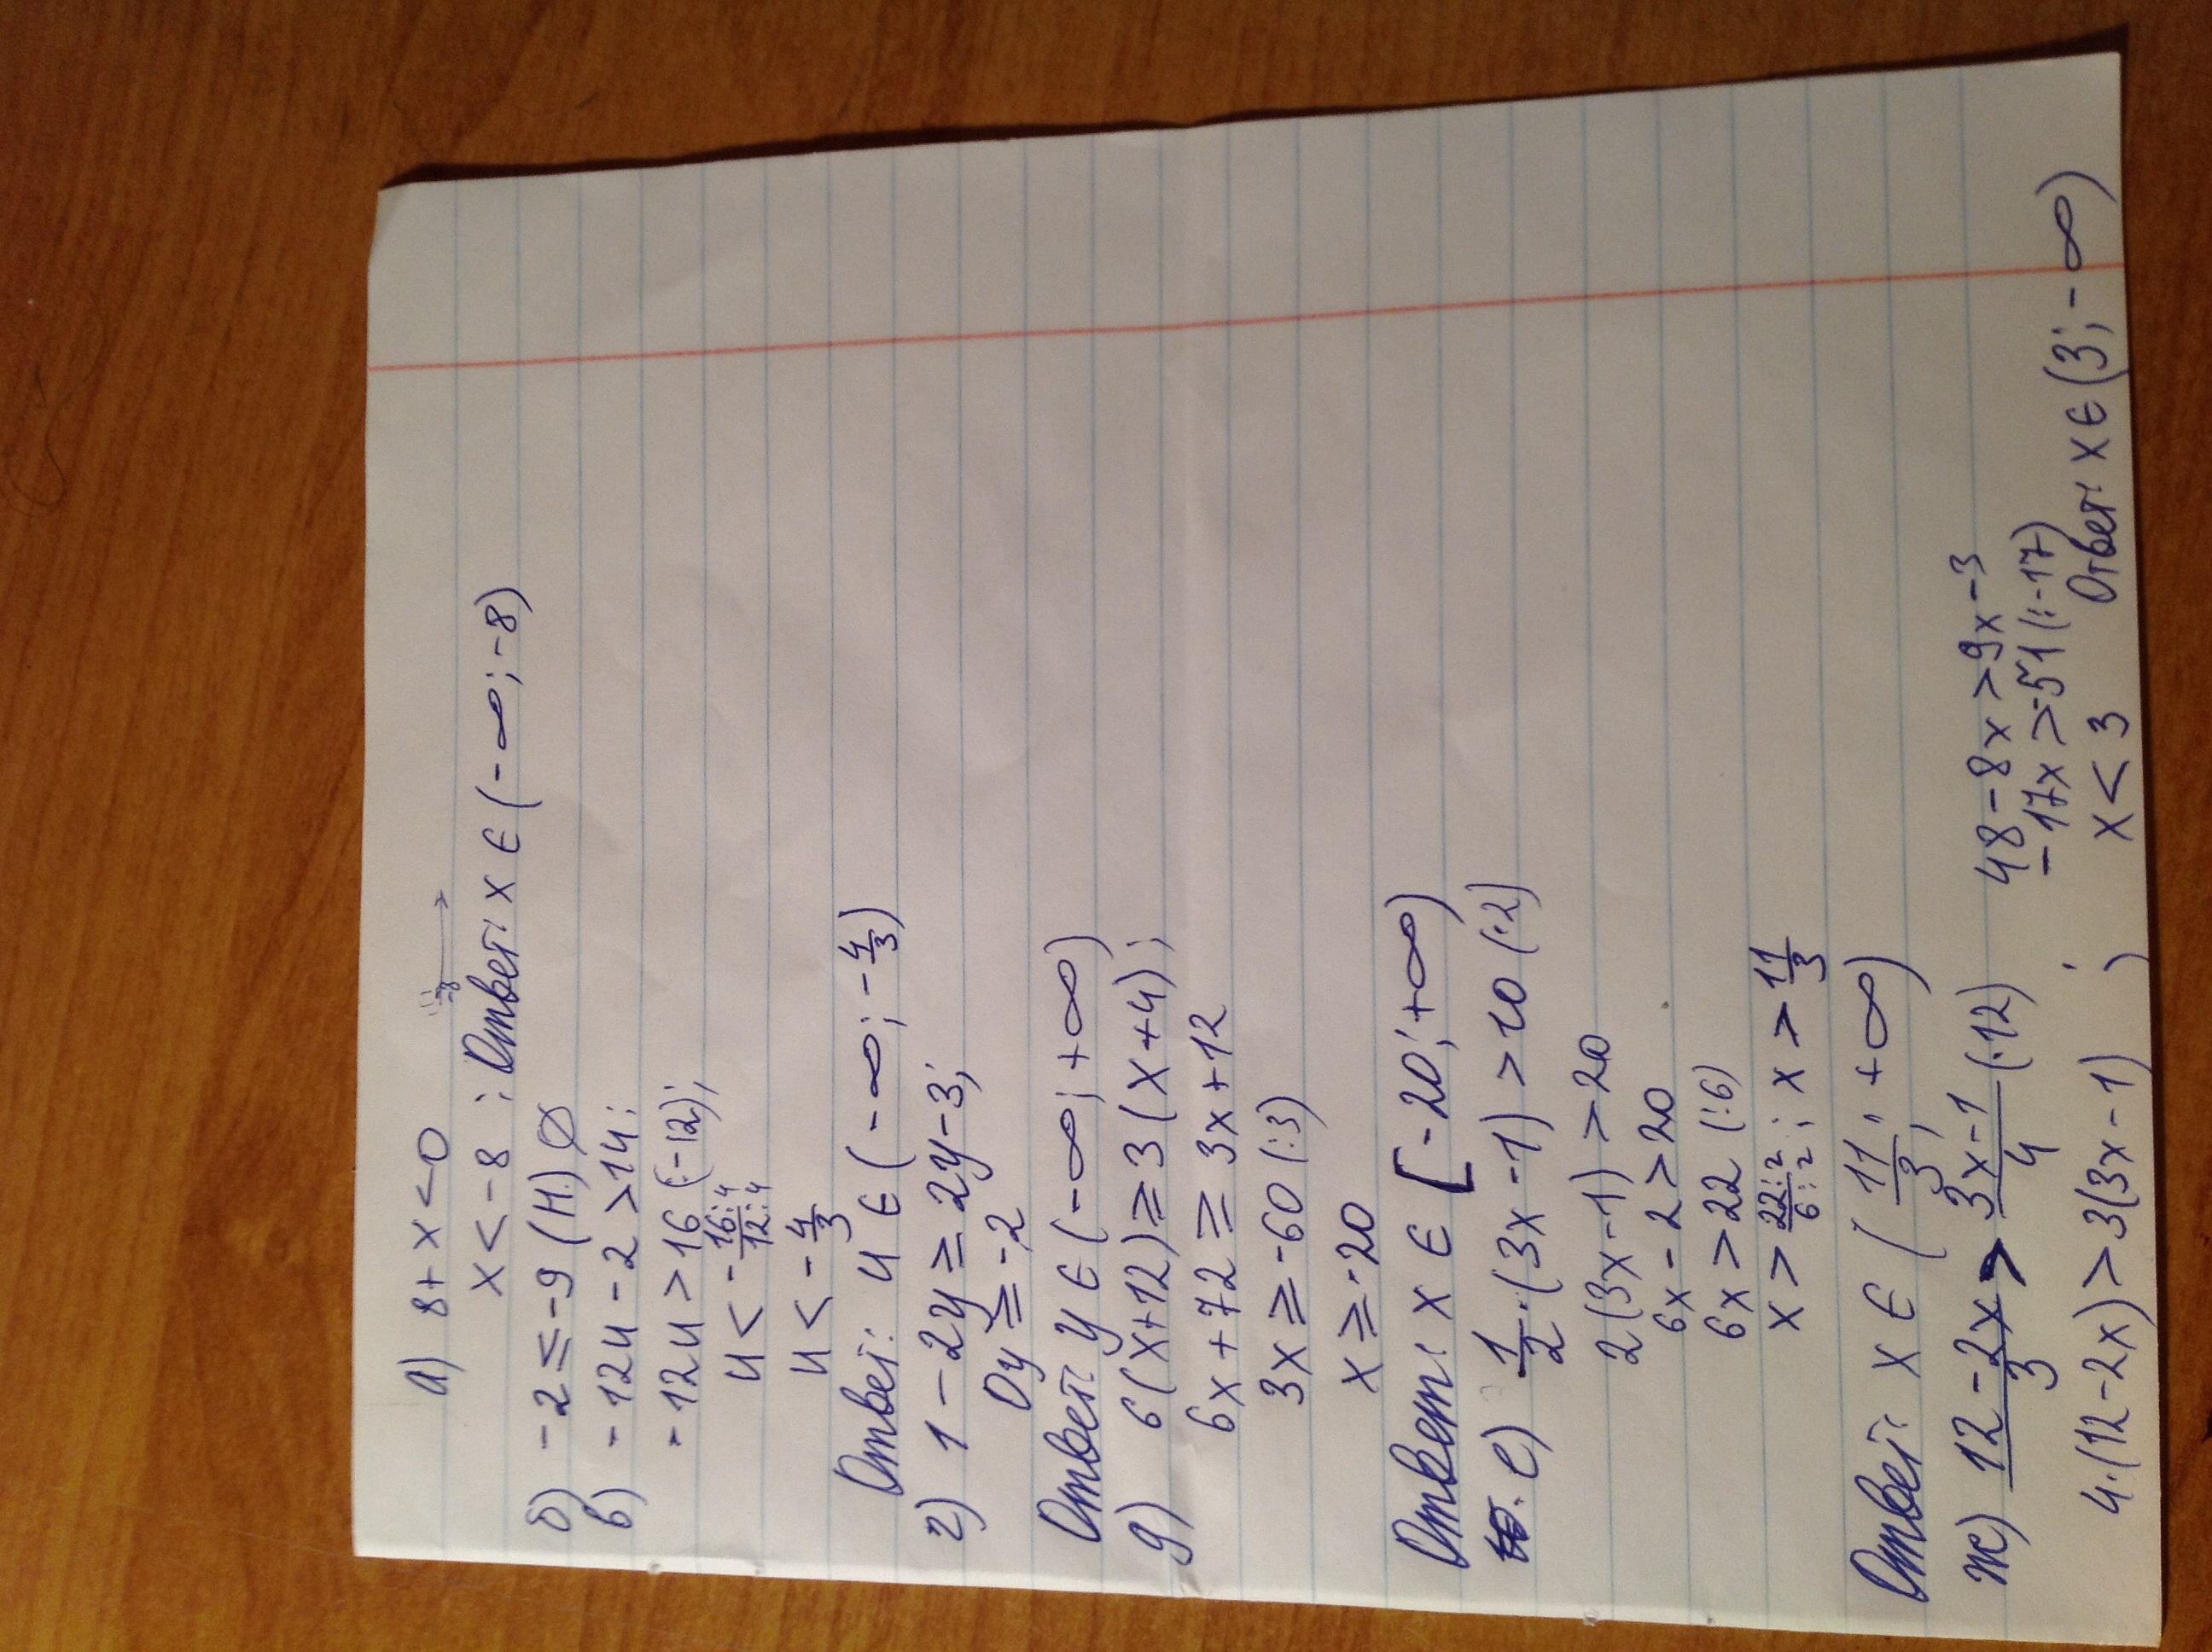 а) 8 + x < 0
x < -8 ; Ответ: x ∈ (-∞; -8)
б) -2 ≤ -9 (Н.) ∅
в) -12u - 2 > 14;
-12u > 16 (:-12);
u < -16:4/12:4
u < -4/3
Ответ: u ∈ (-∞; -4/3)
г) 1 - 2y ≥ 2y - 3;
0y ≥ -2
Ответ: y ∈ (-∞; +∞)
д) 6(x+12) ≥ 3(x+4);
6x + 72 ≥ 3x + 12
3x ≥ -60 (:3)
x ≥ -20
Ответ: x ∈ [-20; +∞)
е) 1/2 · (3x - 1) > 10 (·2)
2(3x - 1) > 20
6x - 2 > 20
6x > 22 (:6)
x > 22:2/6:2 ; x > 11/3
Ответ: x ∈ (11/3; +∞)
ж) 12 - 2x/3 > 3x - 1/4 (·12)
4·(12 - 2x) > 3(3x - 1) ;
48 - 8x > 9x - 3
-17x > -51 (:-17)
x < 3 Ответ: x ∈ (3; -∞)